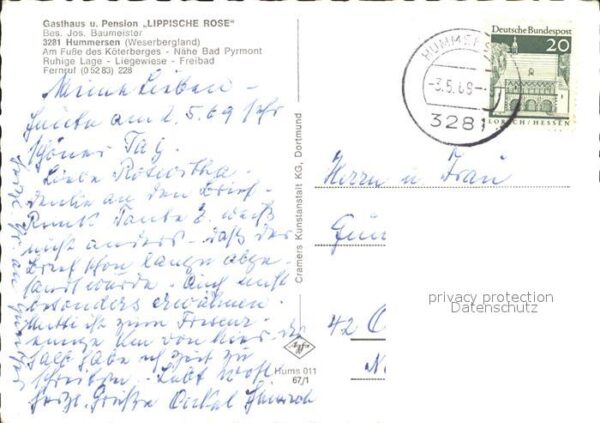 Gasthaus u. Pension „LIPPISCHE ROSE"
Bes. Jos. Baumeister
3281 Hummersen (Weserbergland)
Am Fuße des Köterberges - Nähe Bad Pyrmont
Ruhige Lage - Liegewiese - Freibad
Fernruf (0 52 83) 228
Meine Lieben –
Heute am 2.5.69 Ihr
schöner Tag.
Liebe Roswitha
denke an den Brief
Tante E. weiß
nicht anders – daß der
Brief schon lange abge-
sandt wurde. Auch nicht
besonders erwähnen.
Mutti ist zum Friseur
einige Km von hier. Des-
halb habe ich Zeit zu
schreiben. Lebt wohl
Herzl. Grüße Onkel Heinrich
Cramers Kunstanstalt KG, Dortmund
Hums 011
67/1
HUMMERSEN
-3.5.69-
3281
Deutsche Bundespost
20
LORSCH/HESSEN
Herrn u Frau
42 O
privacy protection
Datenschutz